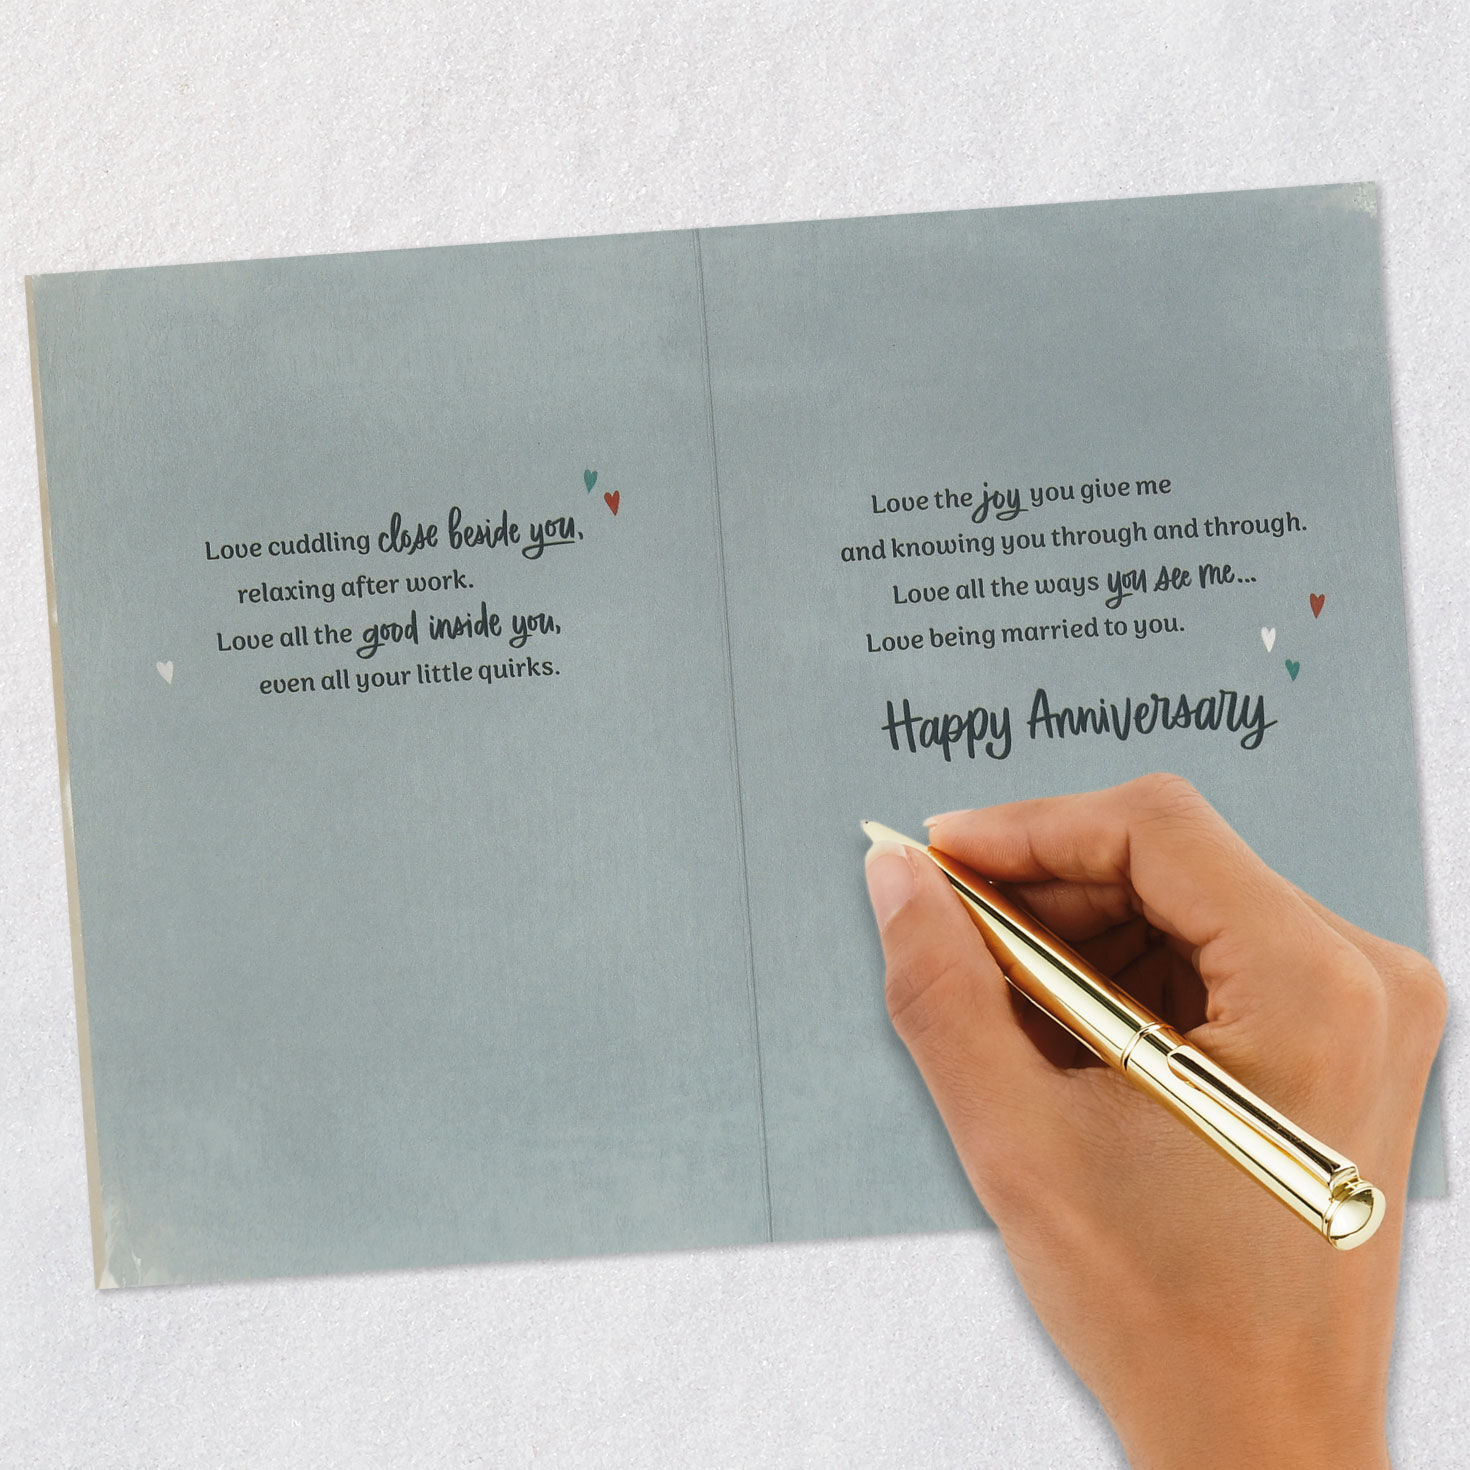 Love cuddling close beside you,
relaxing after work.
Love all the good inside you,
even all your little quirks.
Love the joy you give me
and knowing you through and through.
Love all the ways you see me...
Love being married to you.
Happy Anniversary